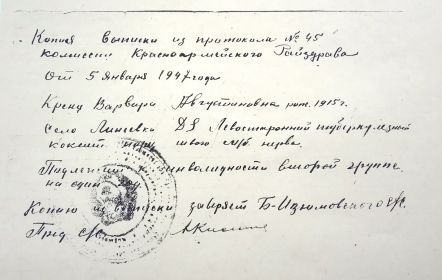 Копия выписки из протокола № 45
комиссии Красноармейского Райздрава
От 5 Января 1947 года
Кренц Варвара Августиновна рож. 1915 г.
Село Линевка DS Левосторонний туберкулезный
коксит
нерва.
Подлежит инвалидности второй группе.
на один
Копию выписки заверяет Б-Изюмовского с/с.
Пред. с/с